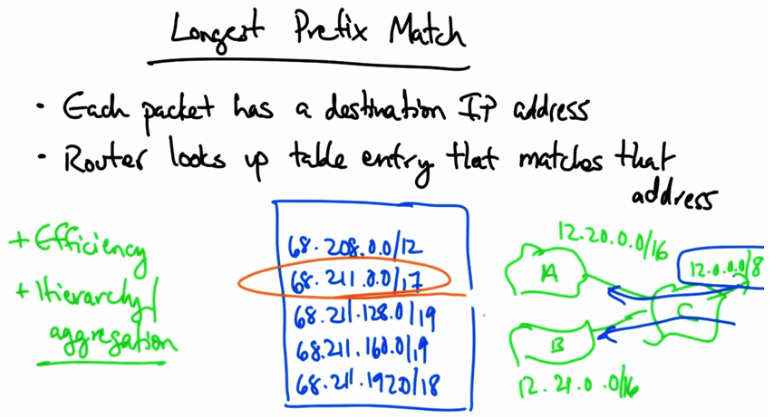 Longest Prefix Match
• Each packet has a destination IP address
• Router looks up table entry that matches that
address
+ Efficiency
+ Hierarchy/
aggregation
68.208.0.0/12
68.211.0.0/17
68.211.128.0/19
68.211.160.0/19
68.211.192.0/18
12.20.0.0/16
A
12.0.0.0/8
C
B
12.21.0.0/16